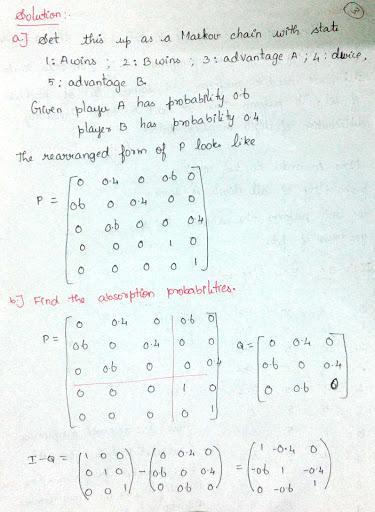 3
Solution:
a] Set this up as a Markov chain with state
1: A wins ; 2: B wins ; 3: advantage A ; 4: deuce,
5: advantage B.
Given player A has probability 0.6
player B has probability 0.4
The rearranged form of P looks like
P = [ 0 0.4 0 0.6 0
0.6 0 0.4 0 0
0 0.6 0 0 0.4
0 0 0 1 0
0 0 0 0 1 ]
b] Find the absorption probabilities.
P = [ 0 0.4 0 0.6 0
0.6 0 0.4 0 0
0 0.6 0 0 0.4
0 0 0 1 0
0 0 0 0 1 ]
Q = [ 0 0.4 0
0.6 0 0.4
0 0.6 0 ]
I - Q = ( 1 0 0 - ( 0 0.4 0 = ( 1 -0.4 0
0 1 0 0.6 0 0.4 -0.6 1 -0.4
0 0 1 ) 0 0.6 0 ) 0 -0.6 1 )